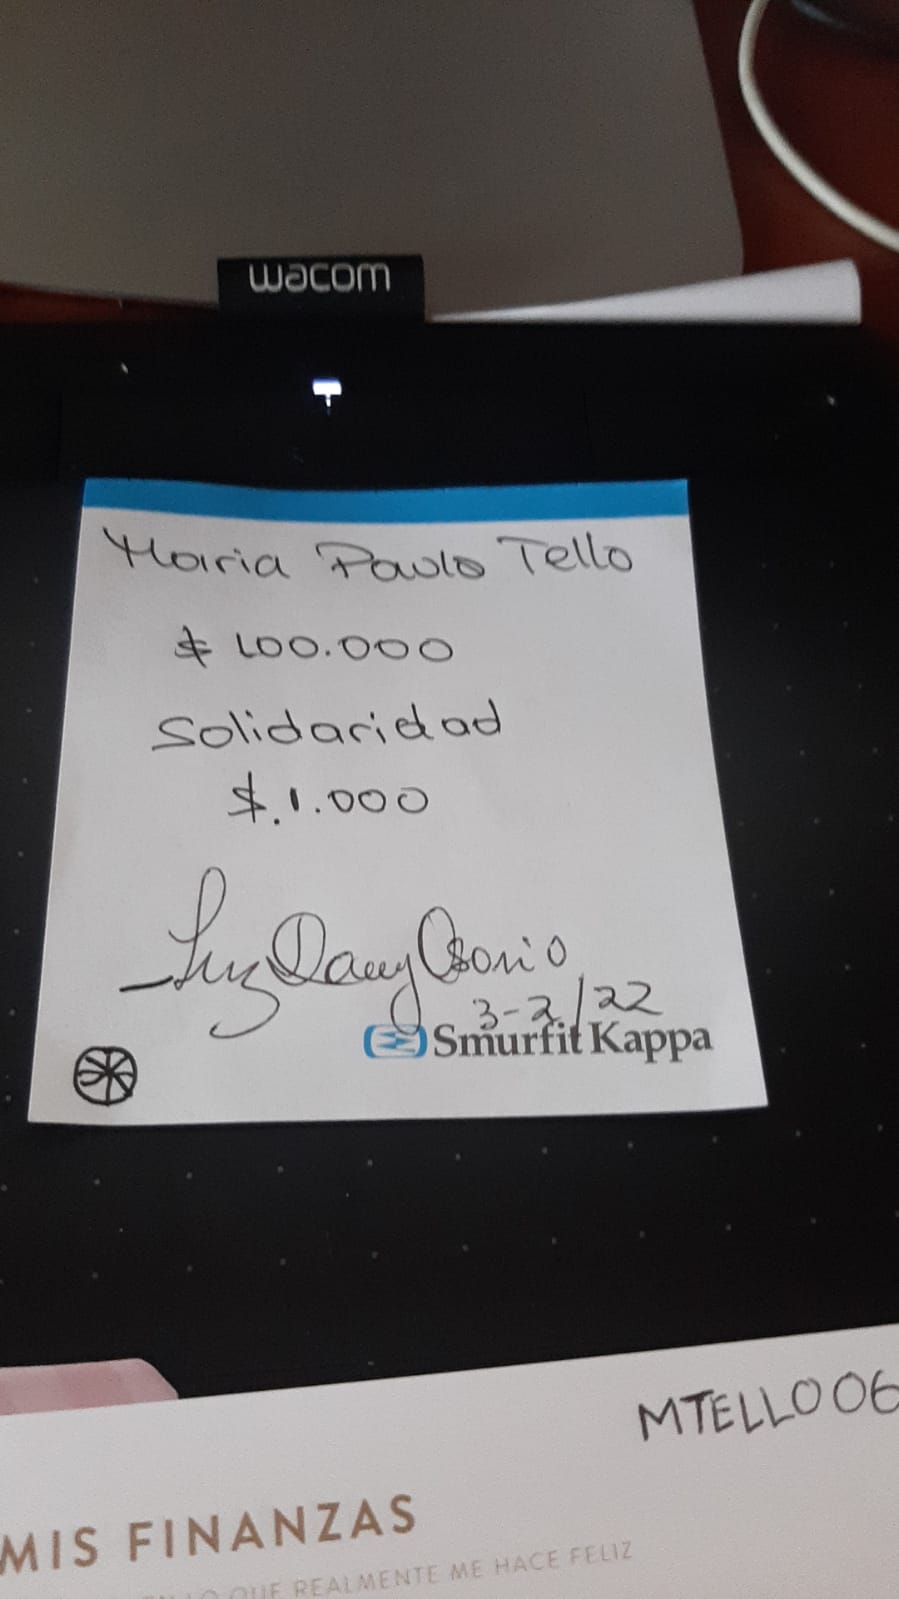 wacom
Maria Paula Tello
$ 100.000
Solidaridad
$.1.000
Luz Dary Osorio
3-2/22
Smurfit Kappa
MTELLO06
MIS FINANZAS
LO QUE REALMENTE ME HACE FELIZ